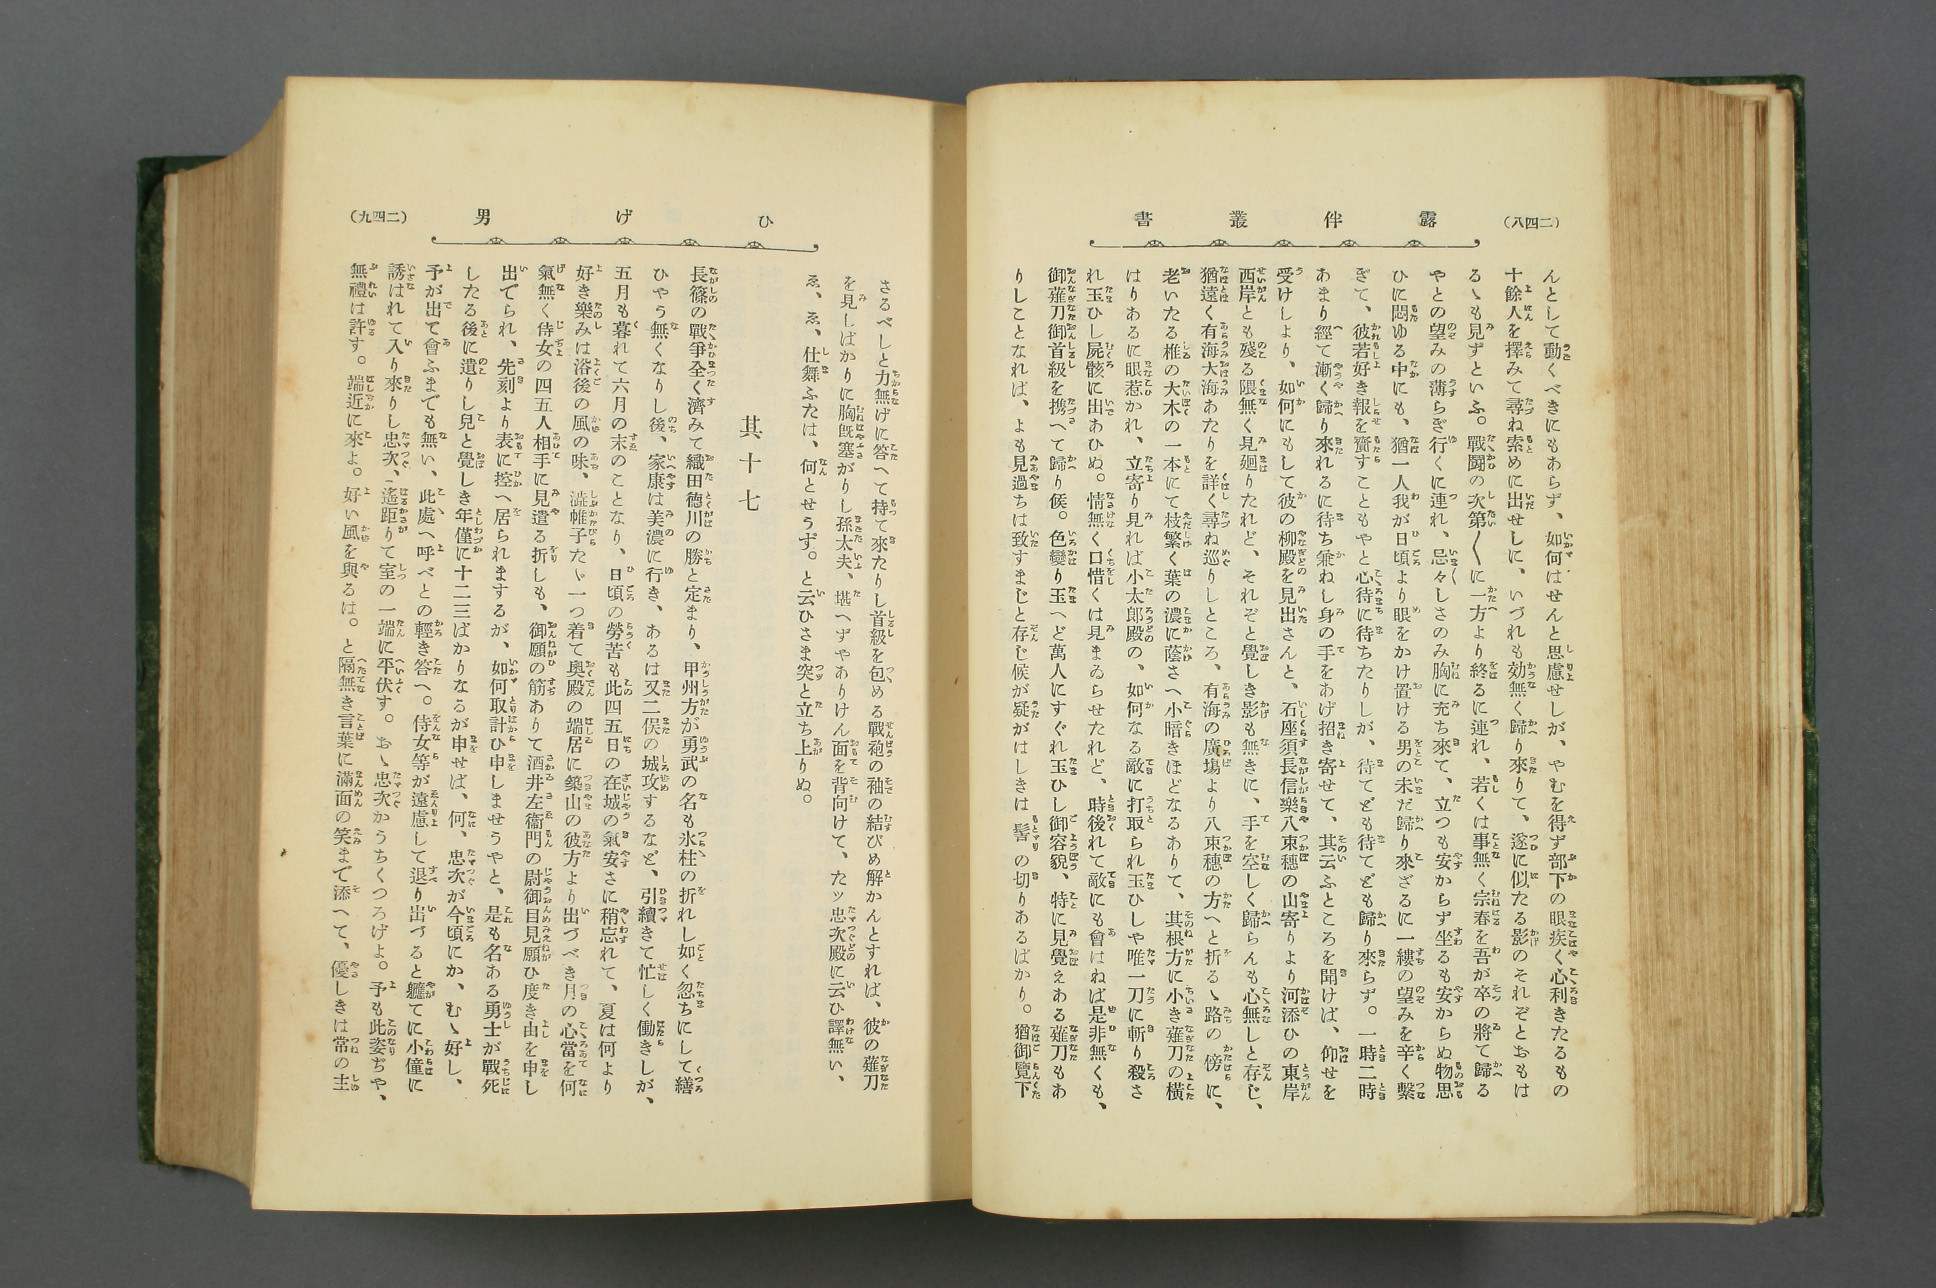 (二四八)
露伴叢書
んとして動くべきにもあらず、如何はせんと思慮せしが、やむを得ず部下の眼疾く心利きたるもの
十餘人を擇みて尋ね索めに出せしに、いづれも効無く歸り來りて、遂に似たる影のそれぞとおもは
るゝも見ずといふ。戰鬪の次第〳〵に一方より終るに連れ、若くは事無く宗春を吾が卒の將て歸る
やとの望みの薄らぎ行くに連れ、忌々しさのみ胸に充ち來て、立つも安からず坐るも安からぬ物思
ひに悶ゆる中にも、猶一人我が日頃より眼をかけ置ける男の未だ歸り來ざるに一縷の望みを辛く繫
ぎて、彼若好き報を齎すこともやと心待に待ちたりしが、待てども待てども歸り來らず。一時二時
あまり經て漸く歸り來れるに待ち兼ねし身の手をあげ招き寄せて、其云ふところを聞けば、仰せを
受けしより、如何にもして彼の柳殿を見出さんと、石座須長信樂八束穗の山寄りより河添ひの東岸
西岸とも殘る隈無く見廻りたれど、それぞと覺しき影も無きに、手を空しく歸らんも心無しと存じ、
猶遠く有海大海あたりを詳しく尋ね巡りしところ、有海の廣場より八束穗の方へと折るゝ路の傍に、
老いたる椎の大木の一本にて枝繁く葉の濃に蔭さへ小暗きほどなるありて、其根方に小き薙刀の橫
はりあるに眼惹かれ、立寄り見れば小太郎殿の、如何なる敵に打取られ玉ひしや唯一刀に斬り殺さ
れ玉ひし屍骸に出あひぬ。情無く口惜くは見まゐらせたれど、時後れて敵にも會はねば是非無くも、
御薙刀御首級を携へて歸り候。色變り玉へど萬人にすぐれ玉ひし御容貌、特に見覺えある薙刀もあ
りしことなれば、よも見過ちは致すまじと存じ候が疑がはしきは髻の切りあるばかり。猶御覽下
ひげ男
(二四九)
さるべしと力無げに答へて持て來たりし首級を包める戰袍の袖の結びめ解かんとすれば、彼の薙刀
を見しばかりに胸旣塞がりし孫太夫、堪へずやありけん面を背向けて、たッ忠次殿に云ひ譯無い、
ゑ、ゑ、仕舞ふたは、何とせうず。と云ひさま突と立ち上りぬ。
其十七
長篠の戰爭全く濟みて織田德川の勝と定まり、甲州方が勇武の名も氷柱の折れし如く忽ちにして繕
ひやう無くなりし後、家康は美濃に行き、あるは又二俣の城攻するなど、引續きて忙しく働きしが、
五月も暮れて六月の末のことなり、日頃の勞苦も此四五日の在城の氣安さに稍忘れて、夏は何より
好き樂みは浴後の風の味、澁帷子たゞ一つ着て奧殿の端居に築山の彼方より出づべき月の心當を何
氣無く侍女の四五人相手に見遣る折しも、御願の筋ありて酒井左衞門の尉御目見願ひ度き由を申し
出でられ、先刻より表に控へ居られまするが、如何取計ひ申しませうやと、是も名ある勇士が戰死
したる後に遺りし兒と覺しき年僅に十二三ばかりなるが申せば、何、忠次が今頃にか、むゝ好し、
予が出て會ふまでも無い、此處へ呼べとの輕き答へ。侍女等が遠慮して退り出づると軈てに小僮に
誘はれて入り來りし忠次、遙距りて室の一端に平伏す。おゝ忠次かうちくつろげよ。予も此姿ぢや、
無禮は許す。端近に來よ。好い風を與るは。と隔無き言葉に滿面の笑まで添へて、優しきは常の主